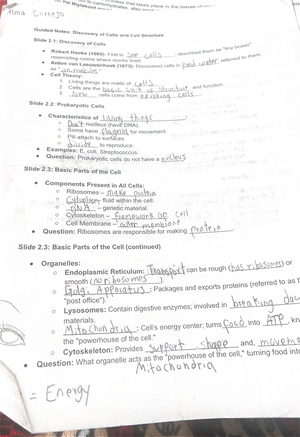 process that takes place in the leaves of
the thylakoid
Alma Cornejo
Guided Notes: Discovery of Cells and Cell Structure
Slide 2.1: Discovery of Cells
• Robert Hooke (1665): First to see cells, described them as "tiny boxes"
resembling rooms where monks lived.
• Anton van Leeuwenhoek (1673): Discovered cells in pond water, referred to them
as "animalcules"
• Cell Theory:
1. Living things are made of cells
2. Cells are the basic unit of structure and function.
3. New cells come from existing cells.
Slide 2.2: Prokaryotic Cells
• Characteristics of living things:
○ Don't nucleus (have DNA).
○ Some have flagella for movement.
○ Pili attach to surfaces.
○ divide to reproduce.
• Examples: E. coli, Streptococcus.
• Question: Prokaryotic cells do not have a nucleus
Slide 2.3: Basic Parts of the Cell
• Components Present in All Cells:
○ Ribosomes – make protein
○ Cytoplasm fluid within the cell.
○ DNA – genetic material.
○ Cytoskeleton – framework of cell
○ Cell Membrane – outer membrane
• Question: Ribosomes are responsible for making protein.
Slide 2.3: Basic Parts of the Cell (continued)
• Organelles:
○ Endoplasmic Reticulum: Transport can be rough (has ribosomes) or
smooth (no ribosomes).
○ Golgi Apparatus: Packages and exports proteins (referred to as t
"post office").
○ Lysosomes: Contain digestive enzymes; involved in breaking dow
materials.
○ Mitochondria: Cell's energy center; turns food into ATP, kn
the "powerhouse of the cell."
○ Cytoskeleton: Provides support, shape and, moveme
• Question: What organelle acts as the "powerhouse of the cell," turning food into
Mitochondria
= Energy